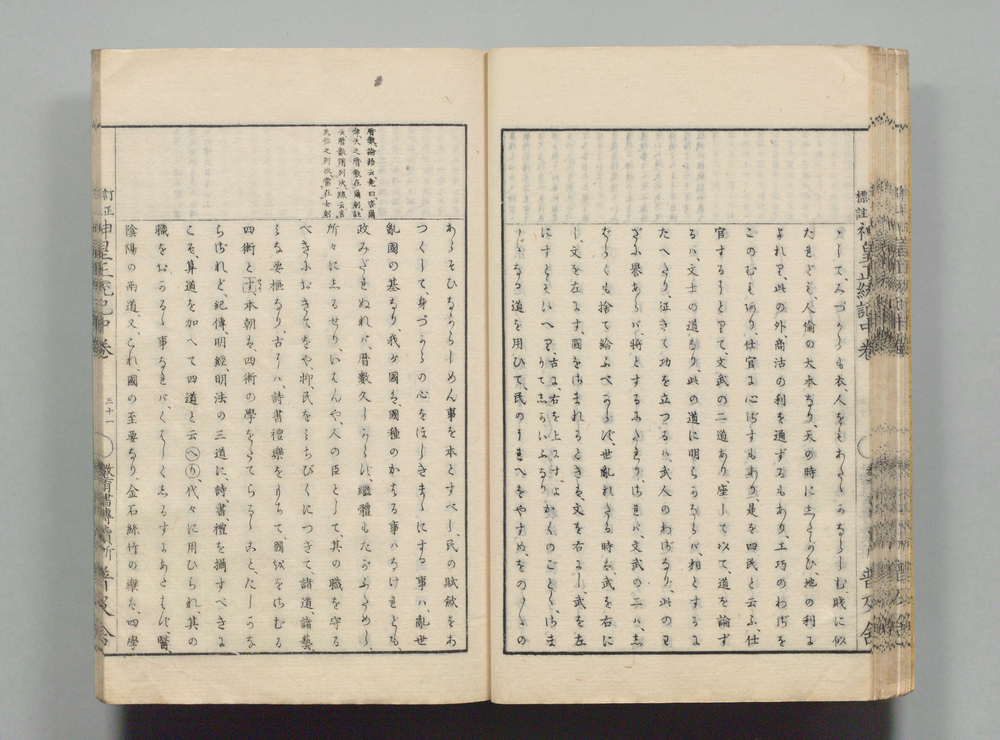 標註神皇正統記中卷　普及舍
ゝして、みづからも衣、人をもあたゝかならしむ賤に似
たれども、人倫の大本なり、天の時にしたがひ、地の利に
よれり、此の外、商沽の利を通ずるもあり、工巧のわざを
このむもあり、仕官に心ざすもあり、是を四民と云ふ、仕
官するにとりて、文武の二道あり、座して以て、道を論ず
るは、文士の道なり、此の道に明らかならば、相とするに
たへたり、征きて功を立つるは、武人のわざなり、此のわ
ざに譽あらば、將とするにたれり、されば、文武の二は、し
ばらくも捨て給ふべからず、世亂れたる時は、武を右に
し、文を左にす、國をさまれるときは、文を右にし、武を左
にすともいへり、古は、右を上にす、よりてしかいふなり かくのごとく、さま
ざまなる道を用ひて、民のうれへをやすめ、をの〳〵の
暦數、論語云、堯曰、咨爾
舜、天之暦數在爾躬、註
云、暦數、謂列次、疏云、言
天位之列次、當在女躬
あらそひなからしめん事を本とすべし、民の賦斂をあ
つくして、身づからの心をほしきまゝにする事は、亂世
亂國の基なり、我が國は、國種のかはる事はなけれども、
政みだれぬれば、暦數久しからず、繼體もたがふためし、
所々にしるせり、いはんや、人の臣として、其の職を守る
べきにおきてをや、抑、民をみちびくにつきて、諸道、諸藝、
みな要樞なり、古には、詩書禮樂をもちて、國ををさむる
四術とす、本朝は、四術の學をたてらるゝこと、たしかな
らざれど、紀傳、明經、明法の三道に、詩、書、禮を攝すべきに
こそ、算道を加へて四道と云へり、代々に用ひられ、其の
職をおかるゝ事なれば、くはしくしるすにあたはず、醫、
陰陽の兩道、又、これ、國の至要なり、金石絲竹の樂は、四學
訂正神皇正統記中卷　三十一　教育書專賣所　普及舍